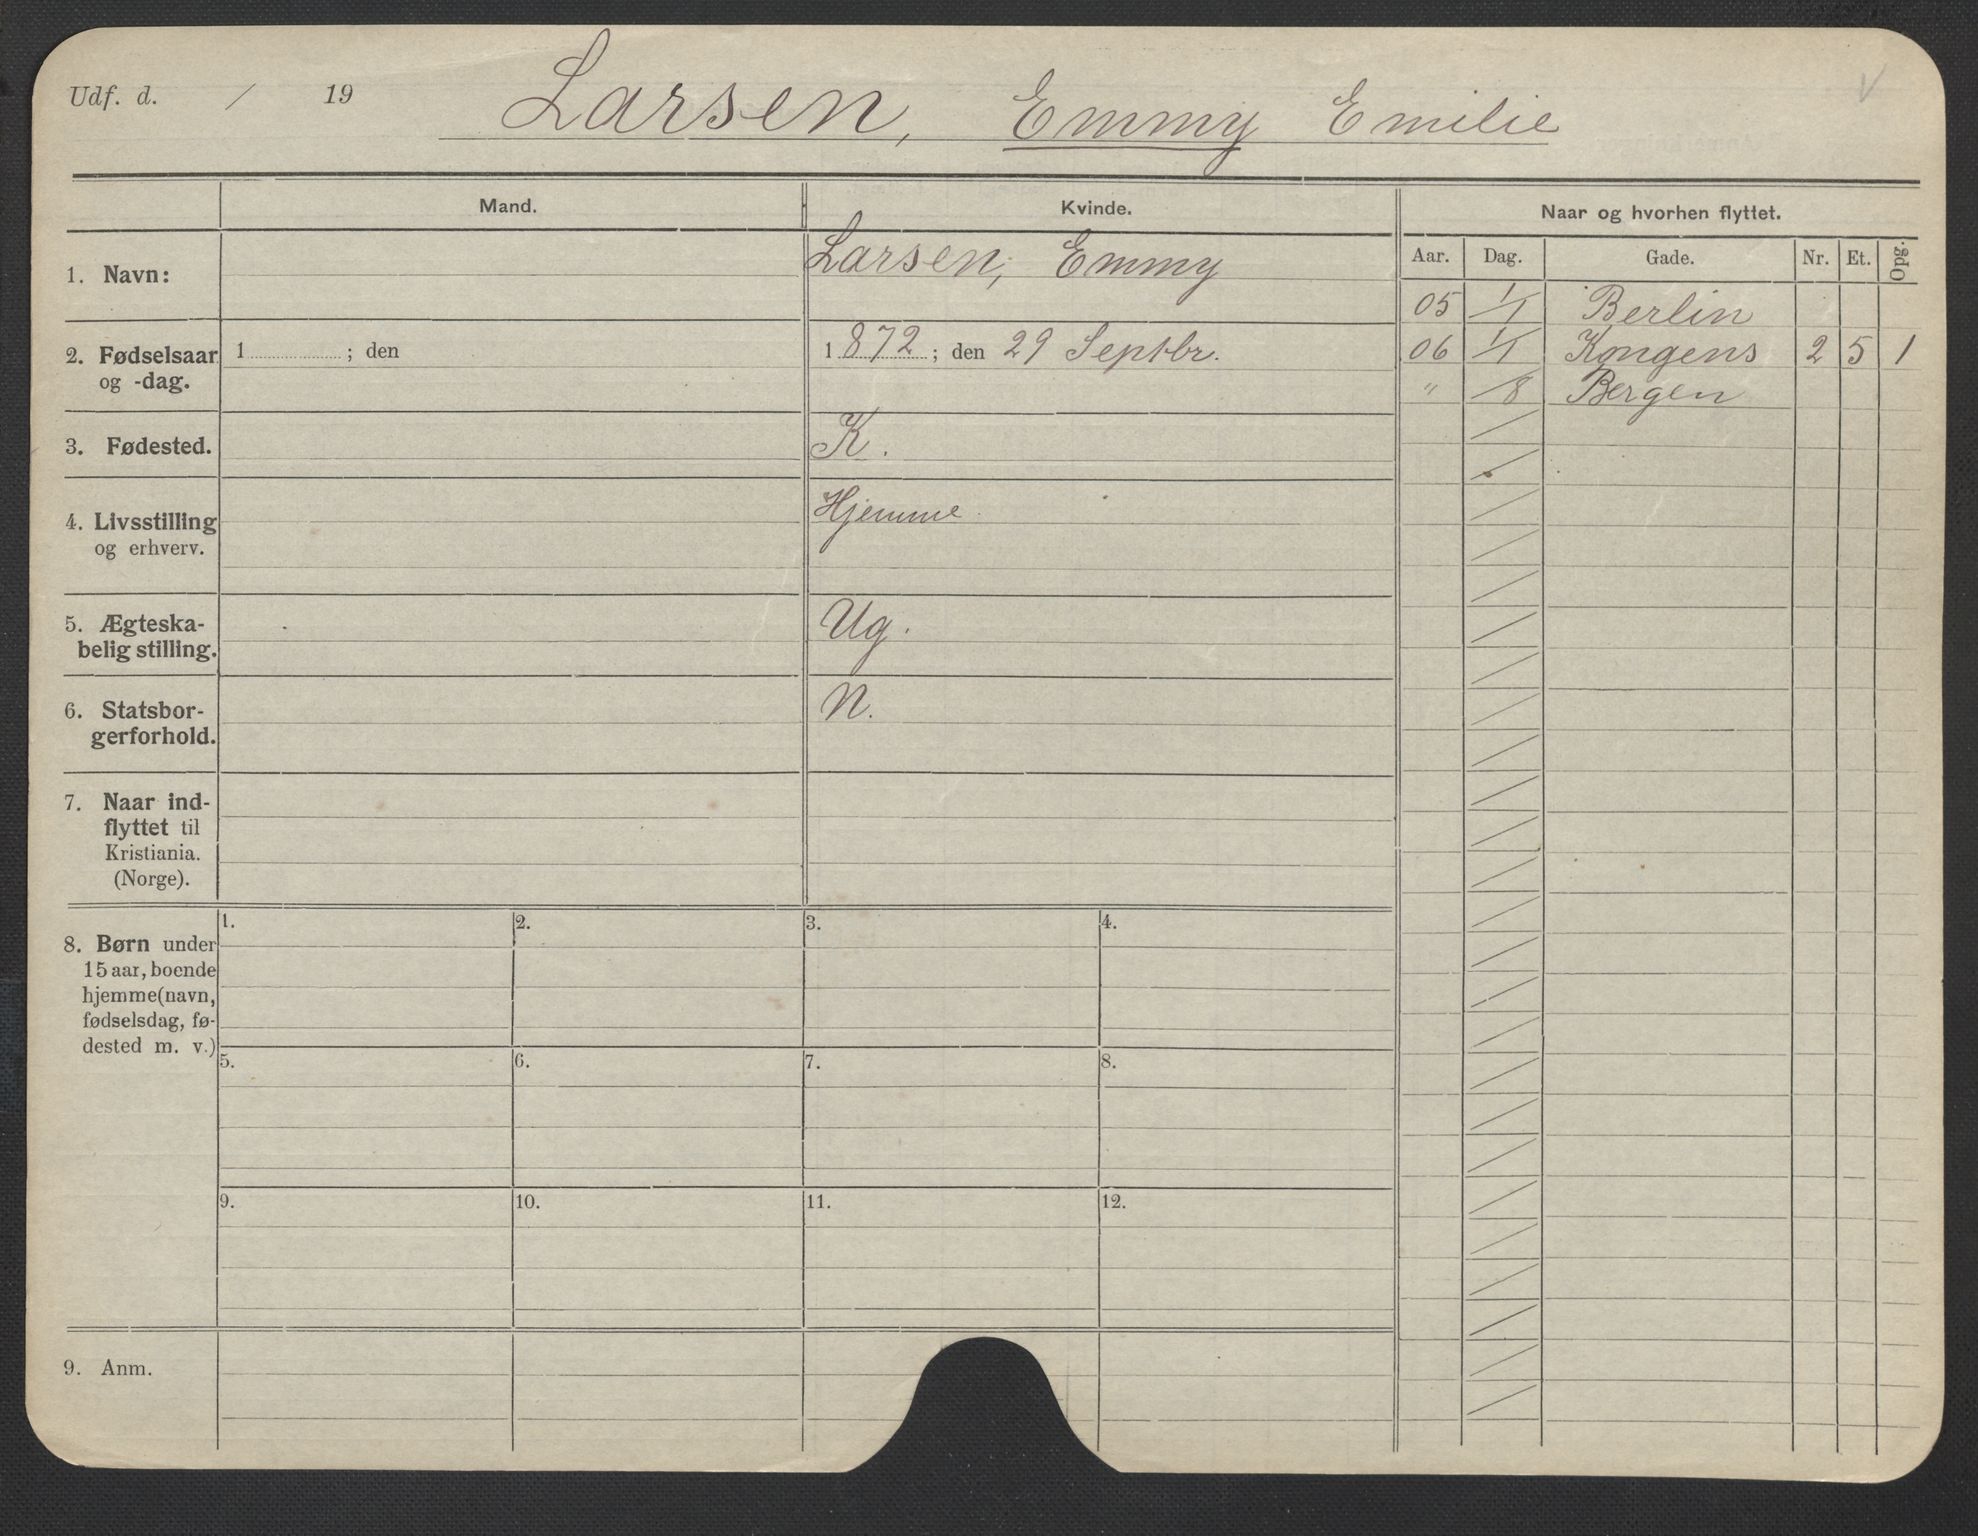 Udf. d. / 19
Larsen, Emmy Emilie
Mand.
Kvinde.
Naar og hvorhen flyttet.
Aar. Dag. Gade. Nr. Et. Opg.
1. Navn:
Larsen, Emmy
05 1/1 Berlin
2. Fødselsaar
og -dag.
1 ; den
1872; den 29 Septbr.
06 1/1 Kongens 2 5 1
" /8 Bergen
3. Fødested.
K.
4. Livsstilling
og erhverv.
Hjemme
5. Ægteska-
belig stilling.
Ug.
6. Statsbor-
gerforhold.
N.
7. Naar ind-
flyttet til
Kristiania.
(Norge).
8. Børn under
15 aar, boende
hjemme (navn,
fødselsdag, fø-
dested m. v.)
1. 2. 3. 4.
5. 6. 7. 8.
9. 10. 11. 12.
9. Anm.